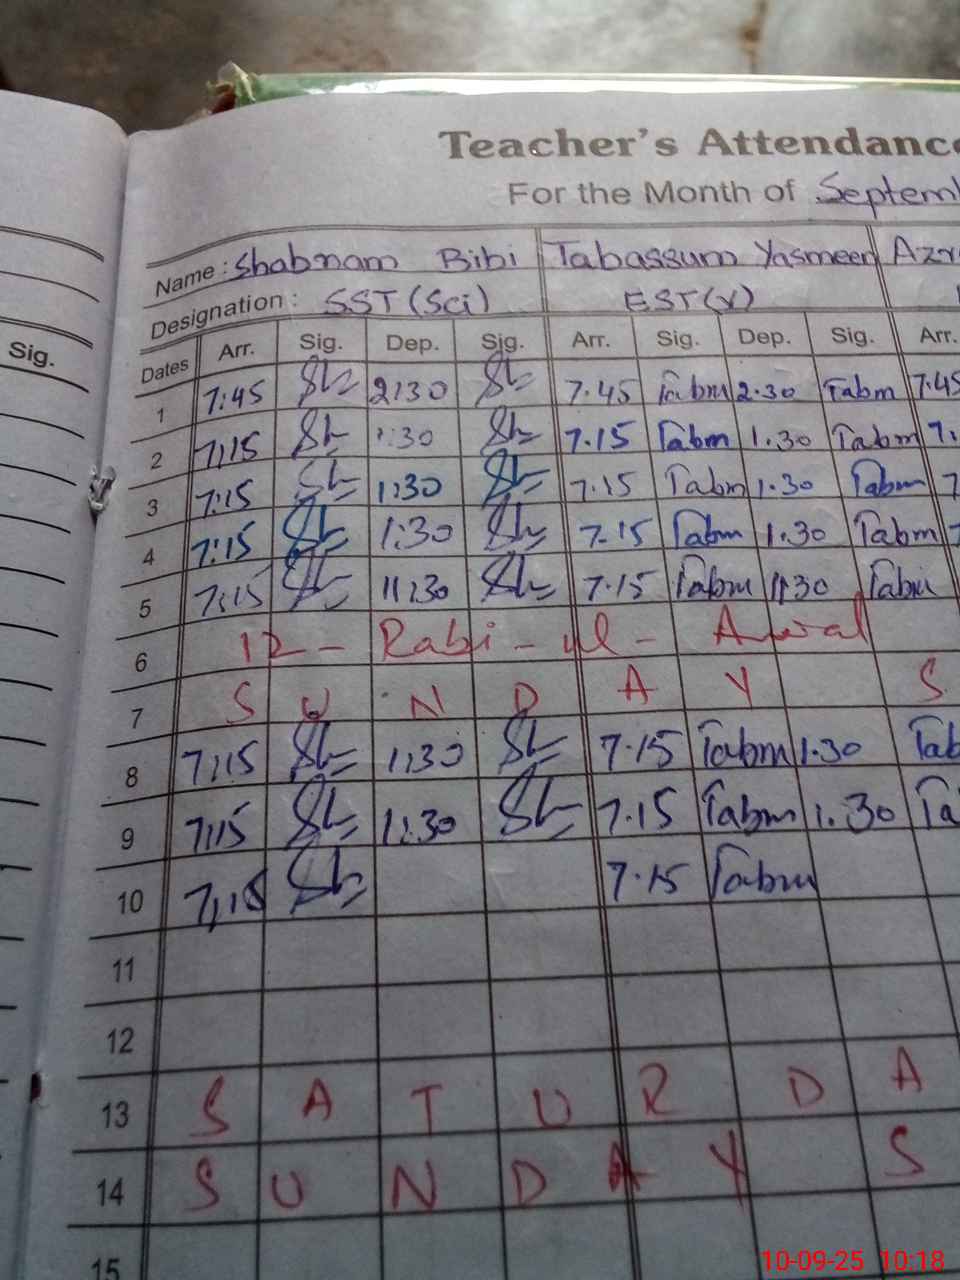 Teacher's Attendance
For the Month of Septem
Name : Shabnam Bibi Tabassum Yasmeen Az
Designation : SST (Sci) EST(V)
Sig.
Dates Arr. Sig. Dep. Sig. Arr. Sig. Dep. Sig. Arr.
1 7:45 Sh 2:30 Sh 7.45 Tabm 2.30 Tabm 7.45
2 7:15 Sh 1:30 Sh 7.15 Tabm 1.30 Tabm 7.
3 7:15 Sh 1:30 Sh 7.15 Tabm 1.30 Tabm 7
4 7:15 Sh 1:30 Sh 7.15 Tabm 1.30 Tabm 7
5 7:15 Sh 11:30 Sh 7.15 Tabm 11.30 Tabm
6 12 - Rabi - ul - Awal
7 S U N D A Y S
8 7:15 Sh 1:30 Sh 7.15 Tabm 1.30 Tab
9 7:15 Sh 1:30 Sh 7.15 Tabm 1.30 Ta
10 7:15 Sh 7.15 Tabm
11
12
13 S A T U R D A
14 S U N D A Y S
15
10-09-25 10:18